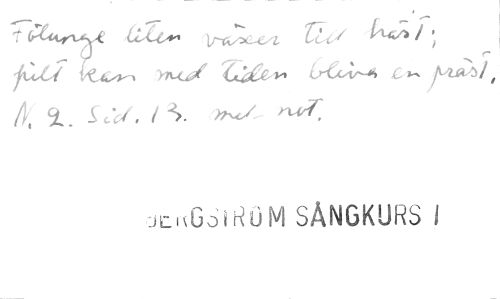 Fölunge liten växer till häst;
pilt kan med tiden bliva en präst.
N. 2. Sid. 13. med not.
BERGSTRÖM SÅNGKURS I